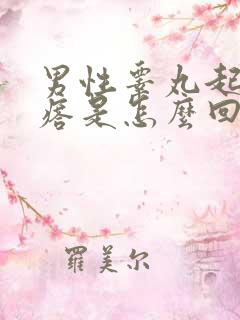 男性睾丸起
痞是怎麼回
羅美尔